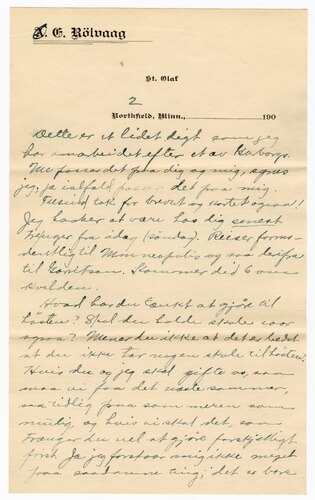 A. E. Rölvaag
St. Olaf
2
Northfield, Minn., 190
Dette er et lidet digt som jeg
har omarbeidet efter et av Garborg.
Me passer det paa dig og mig, synes
jeg; ja ialfald passer det paa mig.
Tusund tak for brevet og kortet ogsaa!
Jeg haaber at være hos dig senest
fra idag (søndag). Reiser
til Minneapolis og saa derifra
til Garretson. Kommer did 6 om
kvelden.
Hvad har du tænkt at gjøre til
høsten? Skal du holde skule
ogsaa? Mener du ikke at det er bedst
at du ikke tar nogen skule til høsten?
Hvis du og jeg skal gifte os, som
maa vi faa det næste sommer,
saa tidlig paa sommeren som
mulig, og hvis vi skal det, saa
trænger du vel at gjøre forskjelligt
først. Ja jeg forstaar mig ikke meget
paa saadanne ting; det er bare